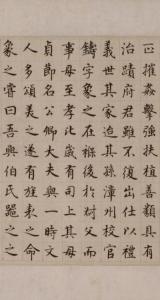 正摧姦擊強扶植善類具有
治蹟府君雖不復出仕以禮
義世其家迨其孫漳州校官
鑄字象之在父而
事母至孝比歲有司上其母
貞節名公卿大夫與一時文
人多頌美之遂有旌表之命
象之曰吾與伯氏之之